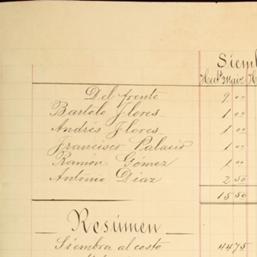 Siemb
Del frente 9 00
Bartolo Flores 1 00
Andrés Flores 1 00
Francisco Palacio 1 00
Ramón Gómez 1 00
Antonio Díaz 2 50
15 50
Resúmen
Siembra al costo 4475